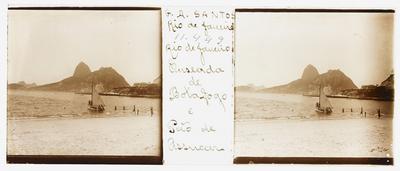 F. A. SANTOS
Rio de Janeiro
11-4-49
Rio de Janeiro
Enseada
de
Botafogo
e
Pão de
Assucar